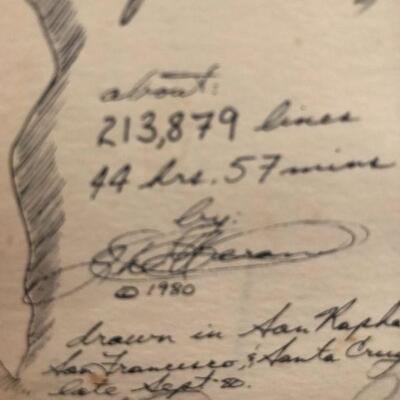 about:
213,879 lines
44 hrs. 57 mins
by:
© 1980
drawn in San Rapha
San Francisco, & Santa Cruz
late Sept 80.